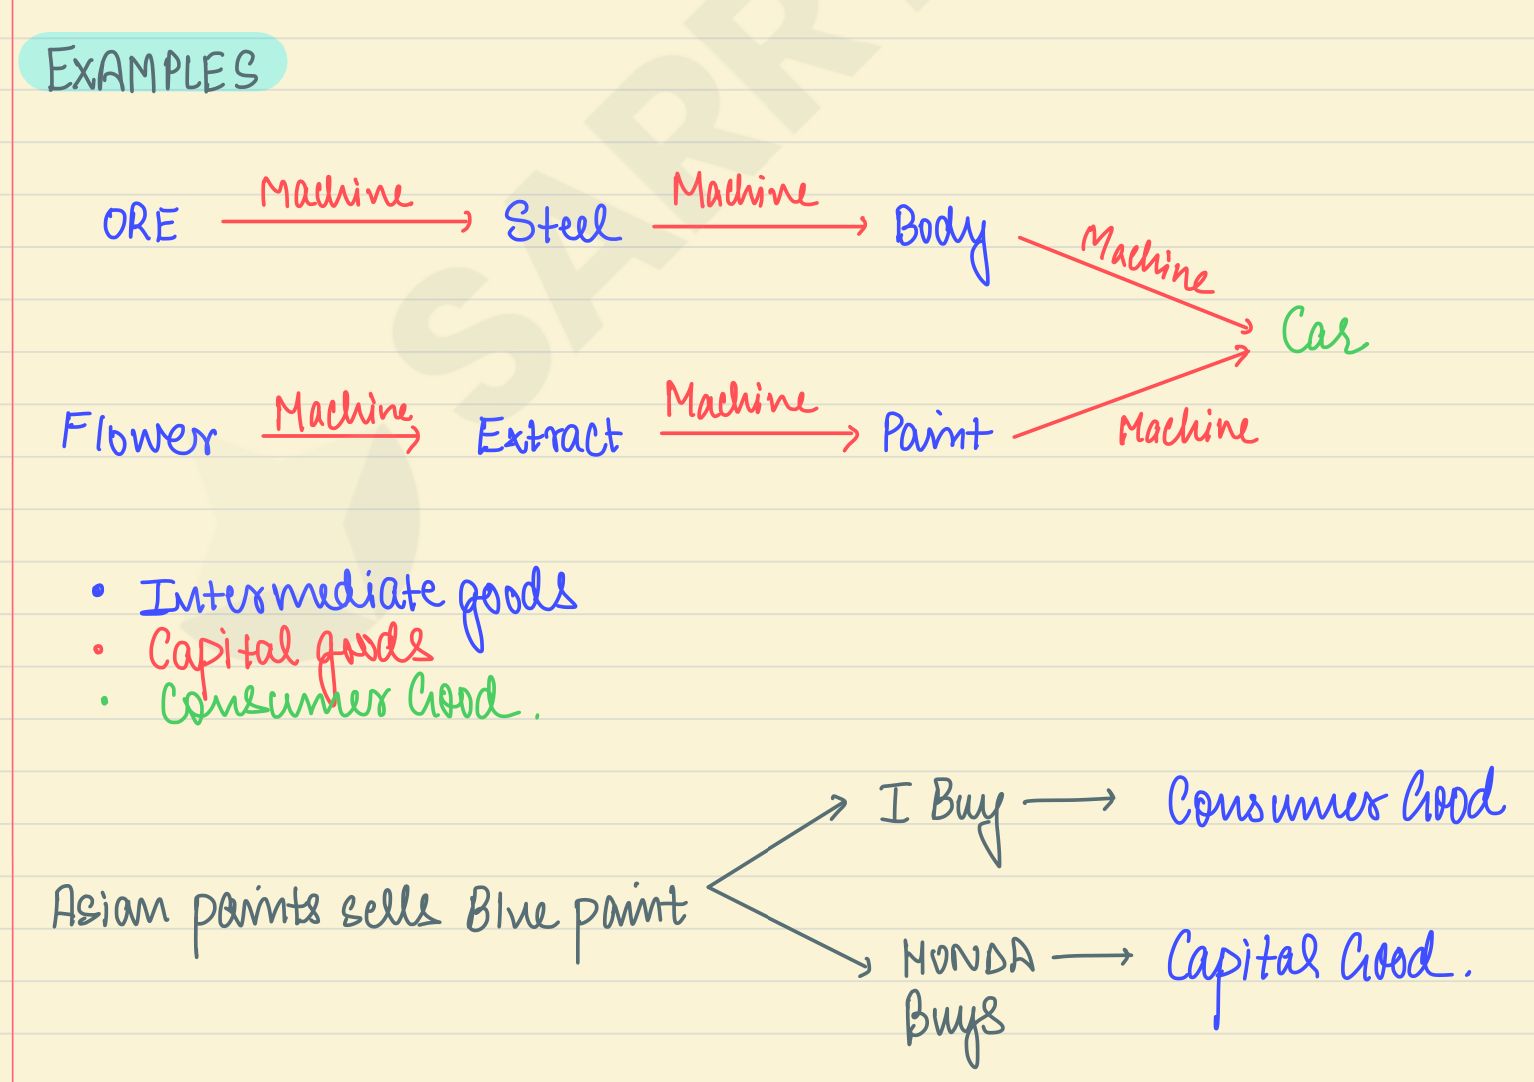 EXAMPLES
ORE Machine Steel Machine Body Machine
Car
Flower Machine Extract Machine Paint Machine
• Intermediate goods
• Capital goods
• Consumer Good.
I Buy → Consumer Good
Asian paints sells Blue paint
HONDA → Capital Good.
Buys
SARR